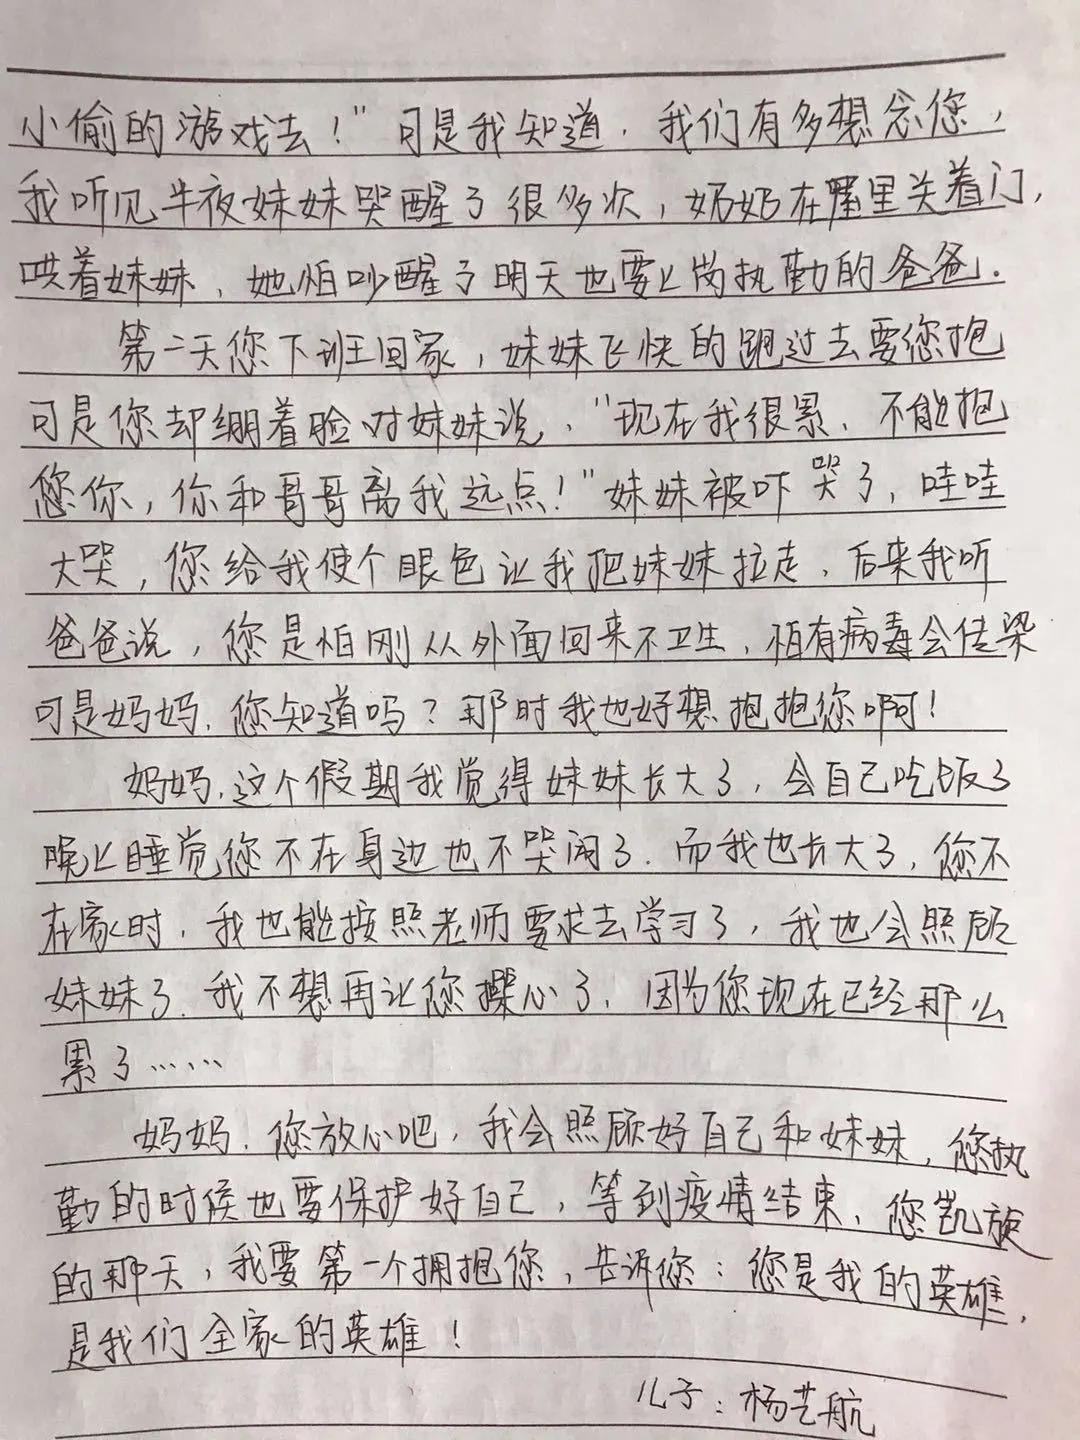 小偷的游戏去！"可是我知道，我们有多想念您，
我听见半夜妹妹哭醒了很多次，奶奶在屋里关着门，
哄着妹妹，她怕吵醒了明天也要上岗执勤的爸爸.
第二天您下班回家，妹妹飞快的跑过去要您抱
可是您却绷着脸对妹妹说，"现在我很累、不能抱
您你，你和哥哥离我远点！"妹妹被吓哭了，哇哇
大哭，您给我使个眼色让我把妹妹拉走，后来我听
爸爸说，您是怕刚从外面回来不卫生，怕有病毒会传染
可是妈妈，您知道吗？那时我也好想抱抱您啊！
妈妈，这个假期我觉得妹妹长大了，会自己吃饭了
晚上睡觉您不在身边也不哭闹了.而我也长大了，您不
在家时，我也能按照老师要求去学习了，我也会照顾
妹妹了.我不想再让您操心了，因为您现在已经那么
累了……
妈妈，您放心吧，我会照顾好自己和妹妹，您执
勤的时候也要保护好自己，等到疫情结束、您凯旋
的那天，我要第一个拥抱您，告诉您：您是我的英雄，
是我们全家的英雄！
儿子：杨艺航